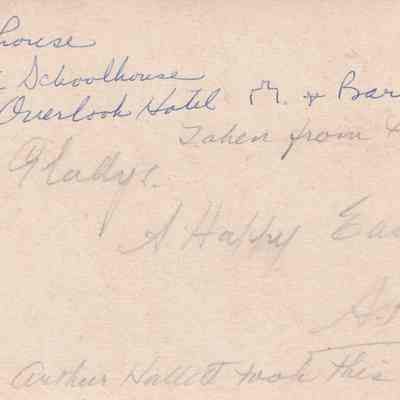 house
Schoolhouse
Overlook Hotel & Bar
Taken from
Gladys.
A Happy Eas
A.
Arthur Hallett took this